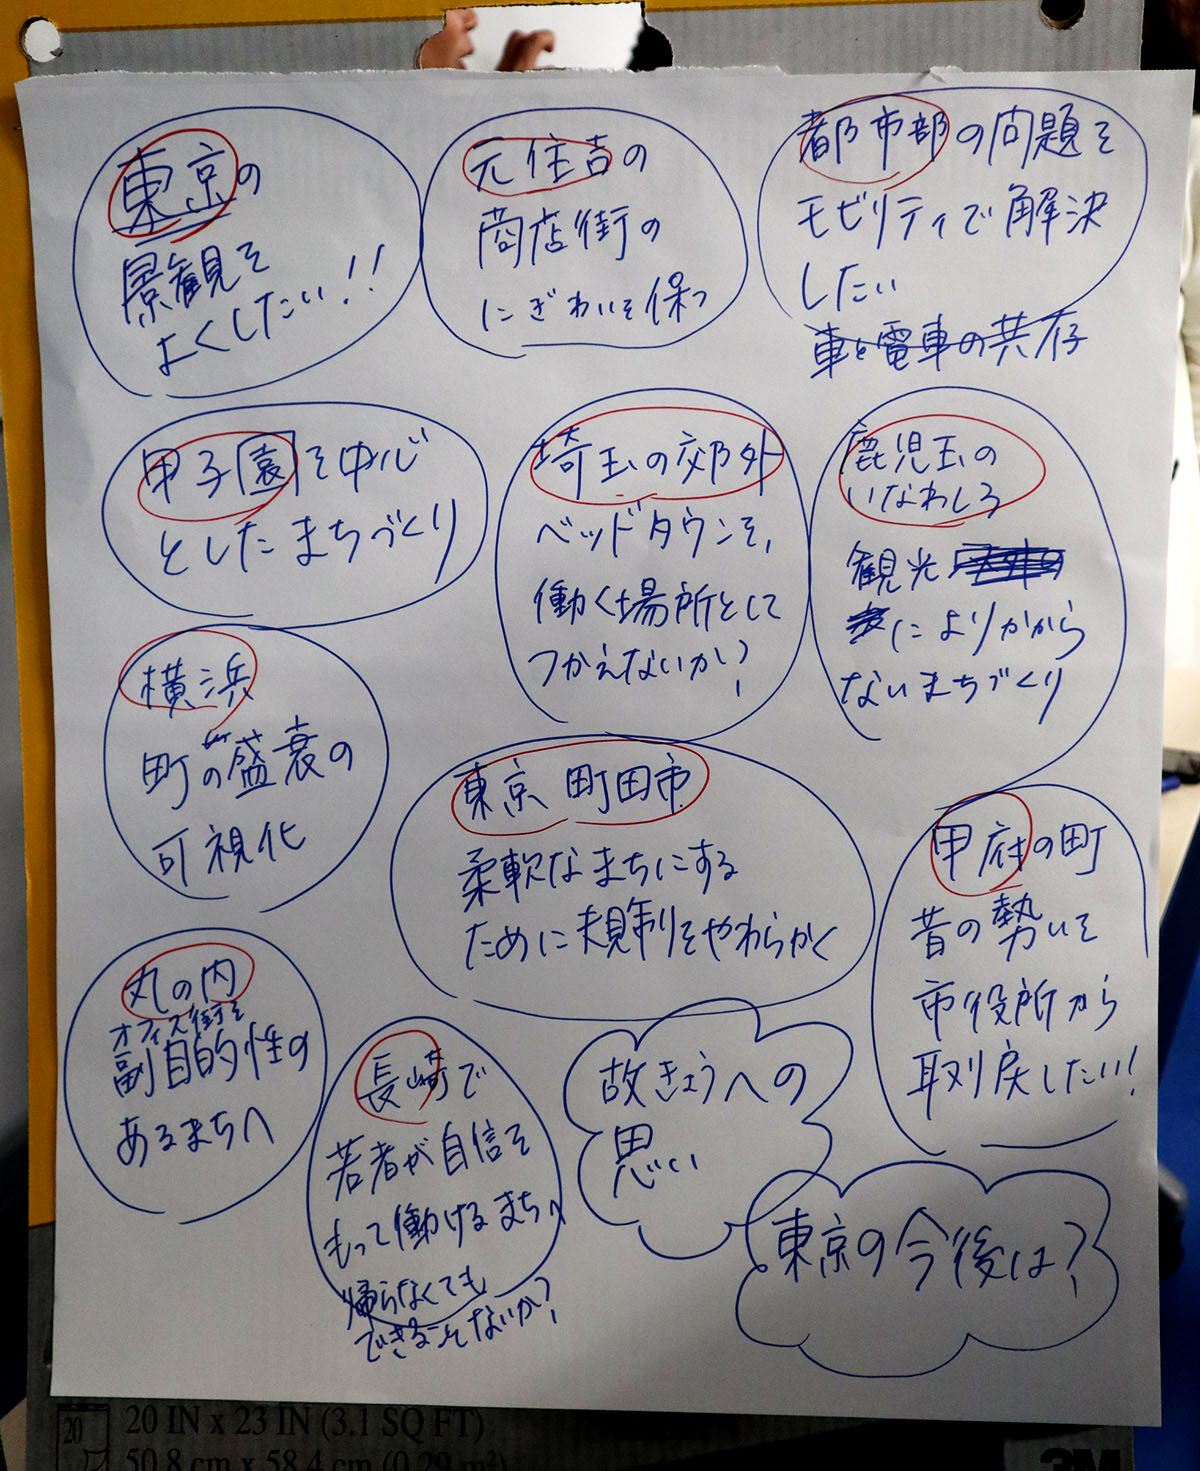 東京の
景観を
よくしたい!!
元住吉の
商店街の
にぎわいを保つ
都市部の問題を
モビリティで解決
したい
車と電車の共存
甲子園を中心
としたまちづくり
埼玉の郊外
ベッドタウンを、
働く場所として
つかえないか?
鹿児玉の
いなわしろ
観光
によりかから
ないまちづくり
横浜
町の盛衰の
可視化
東京 町田市
柔軟なまちにする
ために規制をやわらかく
甲府の町
昔の勢いを
市役所から
取り戻したい!
丸の内
オフィス街を
副目的性の
あるまちへ
長崎で
若者が自信を
もって働けるまちへ
帰らなくても
できることないか?
故きょうへの
思い
東京の今後は?
20
20 IN x 23 IN (3.1 SQ FT)
50.8 cm x 58.4 cm (0.29 m²)
3M